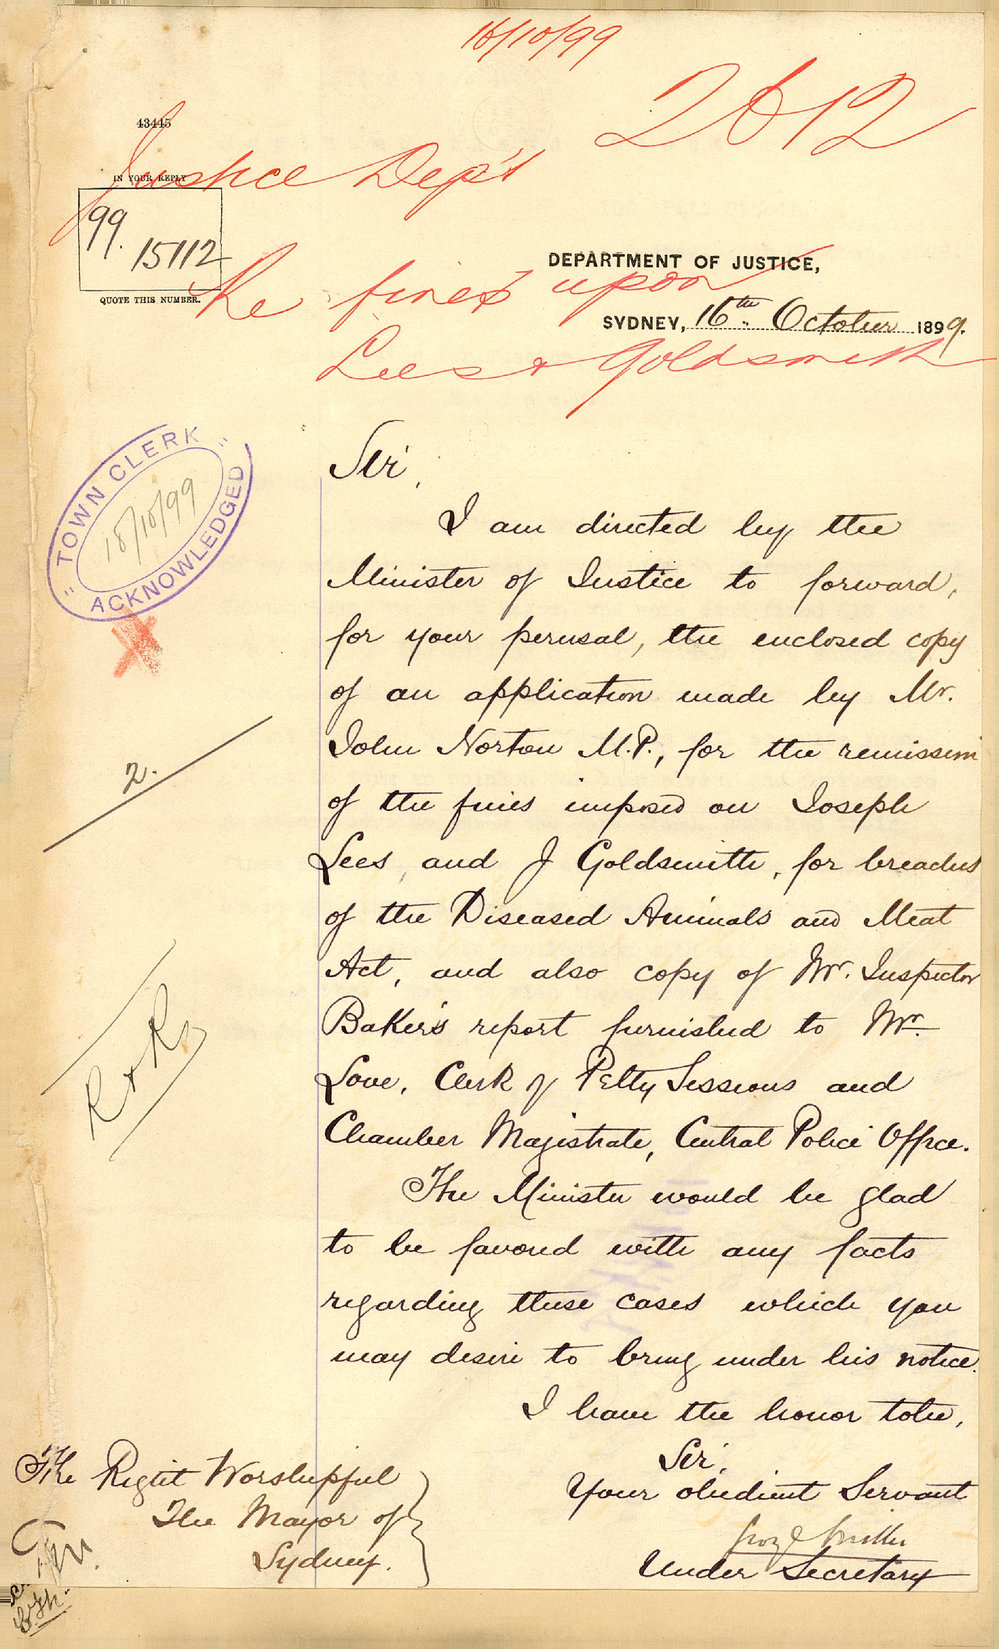 18/10/99
2612
43445
Justice Dep't
IN YOUR REPLY
99.
15112
QUOTE THIS NUMBER.
DEPARTMENT OF JUSTICE,
Re fines upon
SYDNEY, 16th October 1899.
Lees & Goldsmith
"TOWN CLERK"
18/10/99
ACKNOWLEDGED
Sir,
I am directed by the
Minister of Justice to forward,
for your perusal, the enclosed copy
of an application made by Mr.
John Norton M.P., for the remission
2.
of the fines imposed on Joseph
Lees, and J Goldsmith, for breaches
of the Diseased Animals and Meat
Act, and also copy of Mr. Inspector
Baker's report furnished to Mr.
R & R
Love, Clerk of Petty Sessions and
Chamber Magistrate, Central Police Office.
The Minister would be glad
to be favored with any facts
regarding these cases which you
may desire to bring under his notice.
I have the honor to be,
Sir,
Your obedient Servant
Under Secretary
The Right Worshipful
The Mayor of
Sydney.